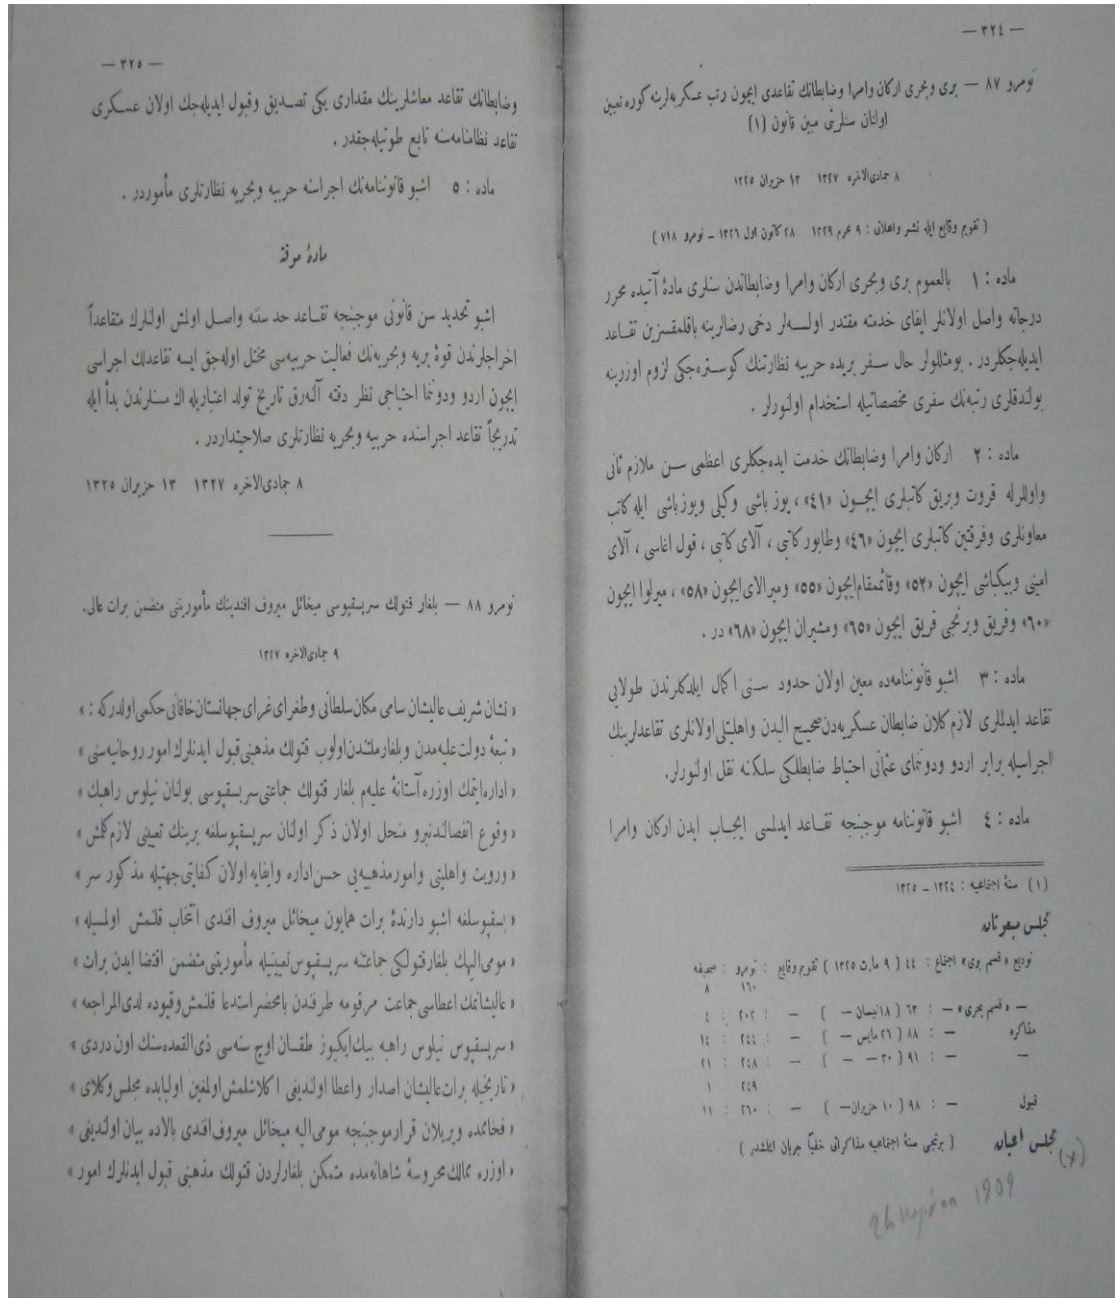 — ٣٢٤ —
نومرو ٨٧ — بری وبحری اركان وامرا وضابطانك تقاعدی ایچون رتب عسكریه‌لرینه كوره تعیین
اولنان سنلری مبین قانون (١)
٨ جمادی‌الاخره ١٣٢٧ ١٣ حزیران ١٣٢٥
( تقویم وقایع ایله نشر واعلانی : ٩ محرم ١٣٢٩ ٢٨ كانون اول ١٣٢٦ – نومرو ٧١٨ )
ماده : ١ بالعموم بری وبحری اركان وامرا وضابطاندن سنلری مادۀ آتیده محرر
درجاته واصل اولانلر ایفای خدمته مقتدر اولسه‌لر دخی رضالرینه باقلمقسزین تقاعد
ایدیله‌جكلردر . بومثللولر حال سفر بریده حربیه نظارتنك كوستره‌جكی لزوم اوزرینه
بولندقلری رتبه‌نك سفری مخصصاتیله استخدام اولنورلر .
ماده : ٢ اركان وامرا وضابطانك خدمت ایده‌جكلری اعظمی سن ملازم ثانی
واوللرله قروت وبریق كاتبلری ایچون «٤١» ، یوز باشی وكیلی ویوزباشی ایله كاتب
معاونلری وفرقتین كاتبلری ایچون «٤٦» وطابور كاتبی ، آلای كاتبی ، قول اغاسی ، آلای
امینی وبیكباشی ایچون «٥٢» وقائممقام‌ایچون «٥٥» ومیرالای‌ایچون «٥٨» ، میرلوا ایچون
«٦٠» وفریق وبرنجی فریق ایچون «٦٥» ومشیران ایچون «٦٨» در .
ماده : ٣ اشبو قانوننامه‌ده معین اولان حدود سنی اكمال ایلدكلرندن طولایی
تقاعد ایدلملری لازم‌كلان ضابطان عسكریه‌دن صحیح البدن واهلیتلی اولانلری تقاعدلرینك
اجراسیله برابر اردو ودونمای عثمانی احتیاط ضابطلكی سلكنه نقل اولنورلر.
ماده : ٤ اشبو قانوننامه موجبنجه تقاعد ایدلمسی ایجاب ایدن اركان وامرا
(١) سنۀ اجتماعیه : ١٣٢٤ – ١٣٢٥
مجلس مبعوثان
تودیع «قسم بری» اجتماع : ٤٤ ( ٩ مارت ١٣٢٥ ) تقویم وقایع : نومرو : صحیفه
١٦٠ ٨
— «قسم بحری» — : ٦٣ ( ١٨ نیسان — ) — : ٢٠٢ : ٤
مذاكره — : ٨٨ ( ٢٦ مایس — ) — : ٢٤٤ : ١٤
— — : ٩١ ( ٣٠ — — ) — : ٢٤٨ : ٢١
٢٤٩ ١
قبول — : ٩٨ ( ١٠ حزیران — ) — : ٢٦٠ : ١١
مجلس اعیان ( برنجی سنۀ اجتماعیه مذاكراتی خفیاً جریان ایتمشدر )
(x)
1909
— ٣٢٥ —
وضابطانك تقاعد معاشلرینك مقداری یكی تصدیق وقبول ایدیله‌جك اولان عسكری
تقاعد نظامنامه‌سنه تابع طوتیله‌جقدر .
ماده : ٥ اشبو قانوننامه‌نك اجراسنه حربیه وبحریه نظارتلری مأموردر .
مادۀ موقته
اشبو تحدید سن قانونی موجبنجه تقاعد حد سننه واصل اولمش اولنلرك متقاعداً
اخراجلرندن قوۀ بریه وبحریه‌نك فعالیت حربیه‌سی مختل اوله‌جق ایسه تقاعدلك اجراسی
ایچون اردو ودونما احتیاجی نظر دقته آلنه‌رق تاریخ تولد اعتباریله اك مسنلرندن بدأ ایله
تدریجاً تقاعد اجراسنده حربیه وبحریه نظارتلری صلاحیتداردر .
٨ جمادی‌الاخره ١٣٢٧ ١٣ حزیران ١٣٢٥
نومرو ٨٨ — بلغار قتولك سرپسقپوسی میخائل میروف افندینك مأموریتنی متضمن برات عالی.
٩ جمادی‌الاخره ١٣٢٧
« نشان شریف عالیشان سامی مكان سلطانی وطغرای غرای جهانستان خاقانی حكمی اولدركه : »
« تبعۀ دولت علیه‌مدن وبلغار ملتندن اولوب قتولك مذهبنی قبول ایدنلرك امور روحانیه‌سنی »
« اداره ایتمك اوزره آستانۀ علیه‌م بلغار قتولك جماعتی سرپسقپوسی بولنان نیلوس راهبك »
« وقوع انفصالندنبرو منحل اولان ذكر اولنان سرپسقپوسلغه برینك تعیینی لازم كلمش »
« ورویت واهلیتی وامورمذهبیه‌یی حسن اداره وایفایه اولان كفایتی جهتیله مذكور سر »
« پسقپوسلغه اشبو دارندۀ برات همایون میخائل میروف افندی انتخاب قلنمش اولمسیله »
« مومی الیهك بلغار قتولكی جماعتنه سرپسقپوس تعیینیله مأموریتنی متضمن اقتضا ایدن برات »
« عالیشانمك اعطاسی جماعت مرقومه طرفندن بامحضر استدعا قلنمش وقیوده لدی المراجعه »
« سرپسقپوس نیلوس راهبه بیك ایكیوز طقسان اوچ سنه‌سی ذی القعده‌سنك اون دردی »
« تاریخیله برات عالیشان اصدار واعطا اولندیغی اكلاشلمش اولمغین اولبابده مجلس وكلای »
« فخاممده ویریلان قرار موجبنجه مومی الیه میخائل میروف افندی بالاده بیان اولندیغی »
« اوزره ممالك محروسۀ شاهانه‌مده متمكن بلغارلردن قتولك مذهبنی قبول ایدنلرك امور »